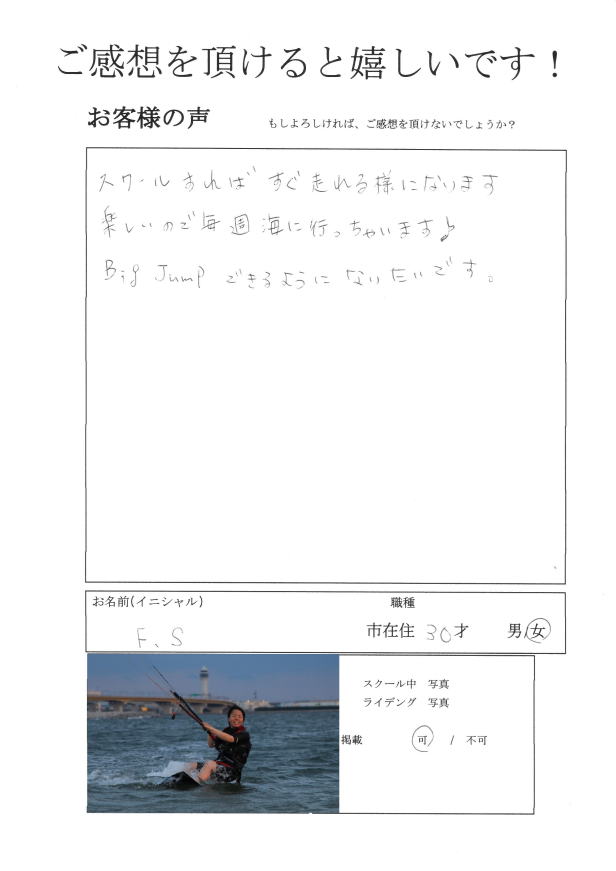 ご感想を頂けると嬉しいです！
お客様の声 もしよろしければ、ご感想を頂けないでしょうか？
スクールすればすぐ走れる様になります
楽しいので毎週海に行っちゃいます♪
Big Jumpできるようになりたいです。
お名前(イニシャル) 職種
F、S 市在住 30才 男/女
スクール中 写真
ライデング 写真
掲載 可 / 不可